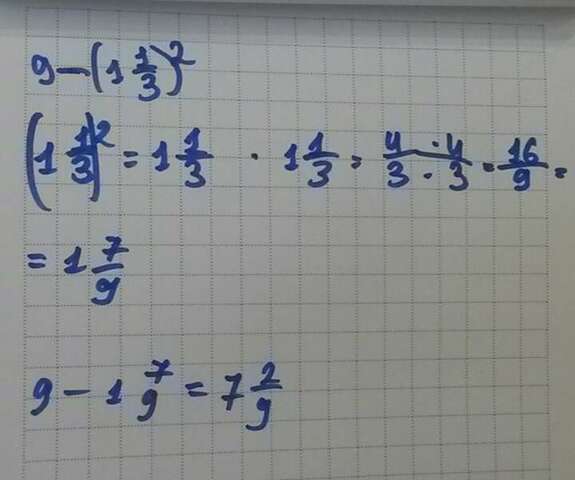 9 - (1 1/3)^2
(1 1/3)^2 = 1 1/3 · 1 1/3 = 4 · 4 / 3 · 3 = 16/9 =
= 1 7/9
9 - 1 7/9 = 7 2/9